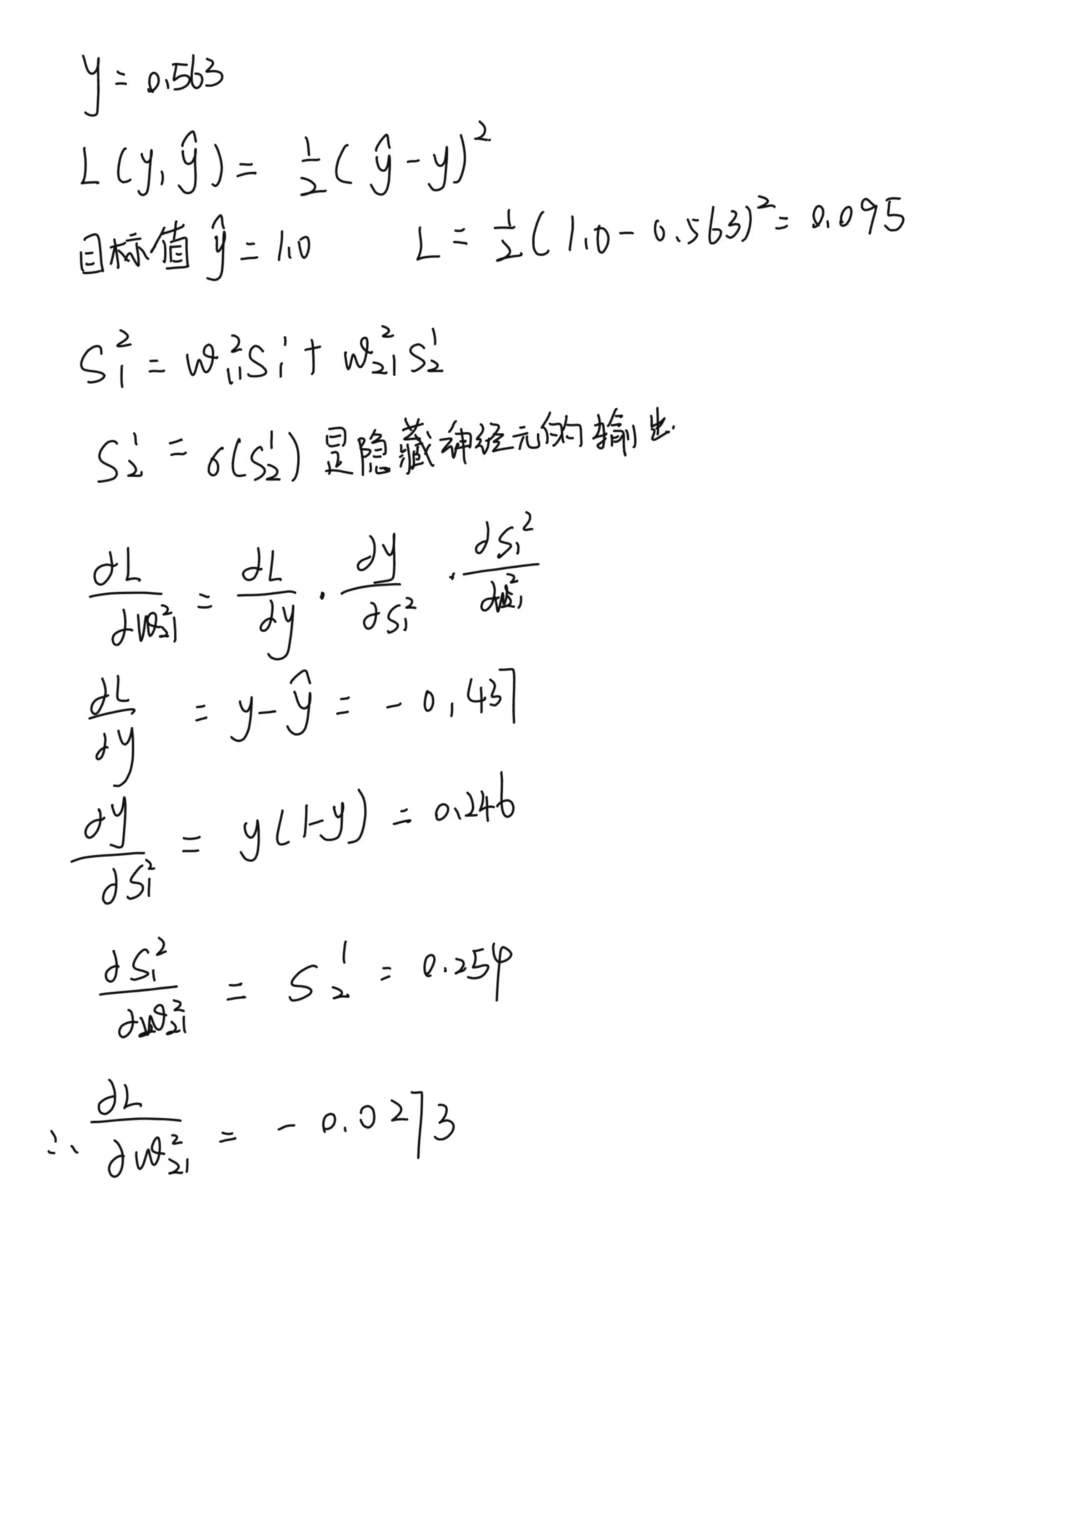 y = 0.563
L(y, ŷ) = 1/2 (ŷ - y)²
目标值 ŷ = 1.0 L = 1/2 (1.0 - 0.563)² = 0.095
S₁² = w₁₁² S₁¹ + w₂₁² S₂¹
S₂¹ = σ(S₂¹) 是隐藏神经元的输出.
∂L/∂w₂₁² = ∂L/∂y · ∂y/∂S₁² · ∂S₁²/∂w₂₁²
∂L/∂y = y - ŷ = - 0.437
∂y/∂S₁² = y(1-y) = 0.246
∂S₁²/∂w₂₁² = S₂¹ = 0.254
∴ ∂L/∂w₂₁² = - 0.0273